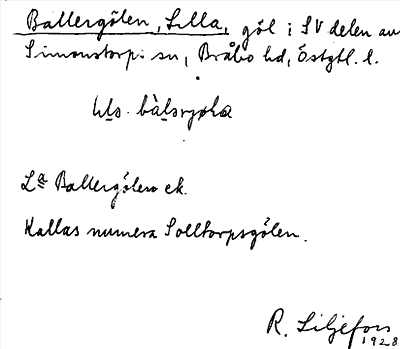 Ballergölen, Lilla, göl i SV delen av
Simonstorps sn, Bråbo hd, Östgtl. l.
La Ballergölen ek.
Kallas numera Solltorpsgölen.
R. Liljefors
1928